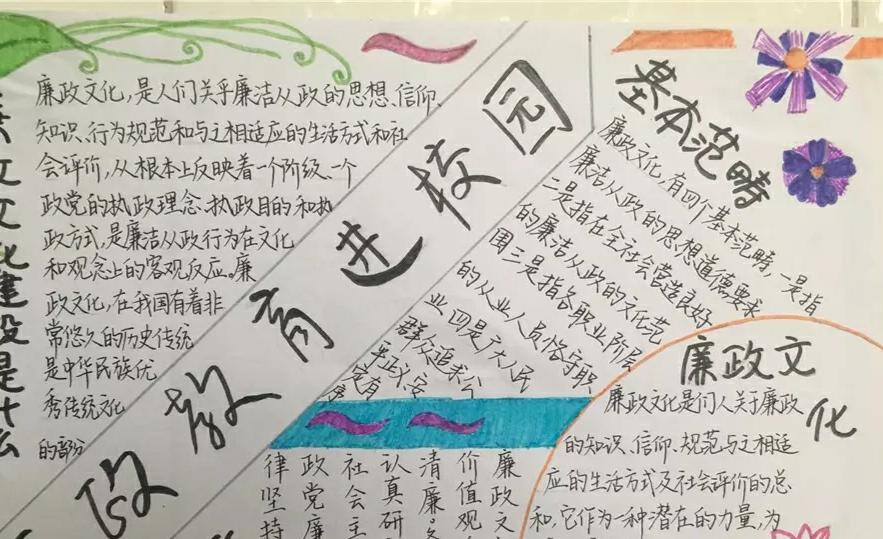 廉政文化,是人们关乎廉洁从政的思想、信仰、
知识、行为规范和与之相适应的生活方式和社
会评价,从根本上反映着一个阶级、一个
政党的执政理念、执政目的和执
政方式,是廉洁从政行为在文化
和观念上的客观反应。廉
政文化,在我国有着非
常悠久的历史传统
是中华民族优
秀传统文化
的部分
文化建设是什么
政教育进校园
基本范畴
廉政文化,有四个基本范畴,一是指
廉洁从政的思想道德要求
二是指在全社会营造良好
的廉洁从政的文化范
围三是指各职业阶层
的从业人员恪守职
业四是广大人民
群众追求公
平正义、安
定有
序
廉政文
价值观
清廉。
认真研
社会主
政党廉
律坚持
廉政文化
廉政文化是们人关于廉政
的知识、信仰、规范与之相适
应的生活方式及社会评价的总
和,它作为一种潜在的力量,为